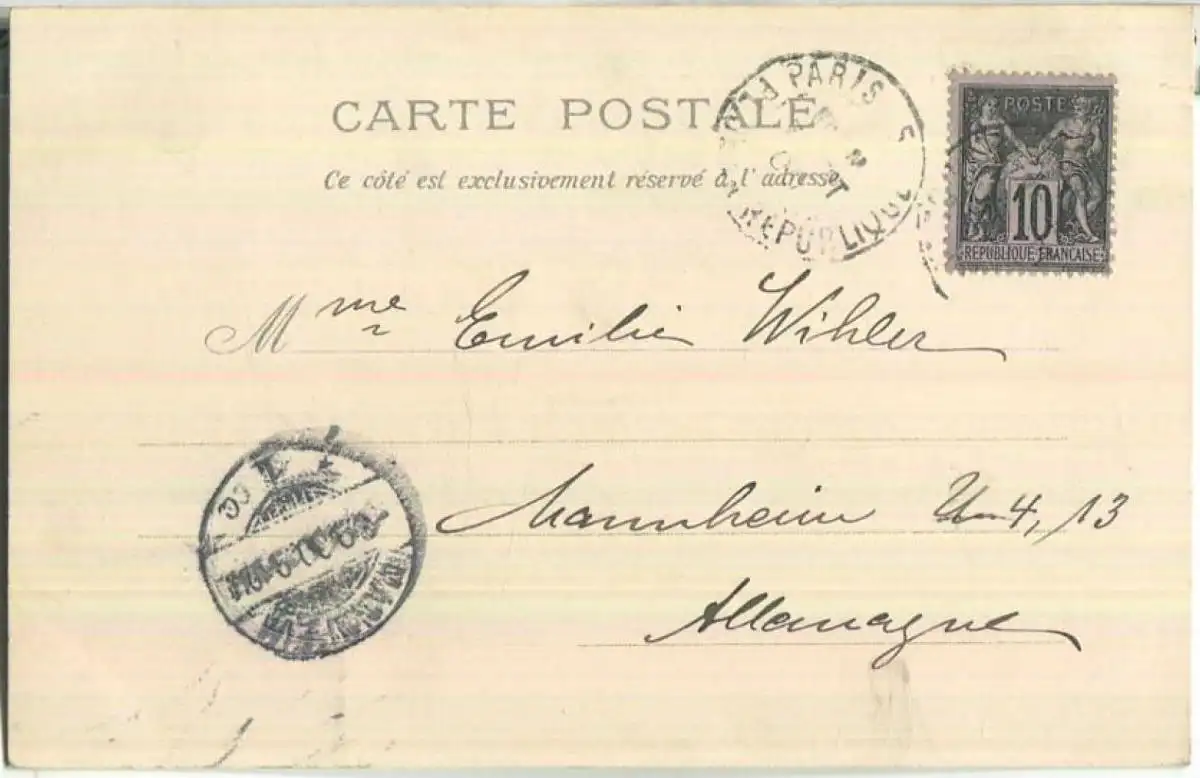 CARTE POSTALE
Ce côté est exclusivement réservé à l'adresse
PARIS
REPUBLIQUE
POSTES
10
REPUBLIQUE FRANCAISE
Mme Emilie Wihler
Mannheim U 4, 13
Allemagne